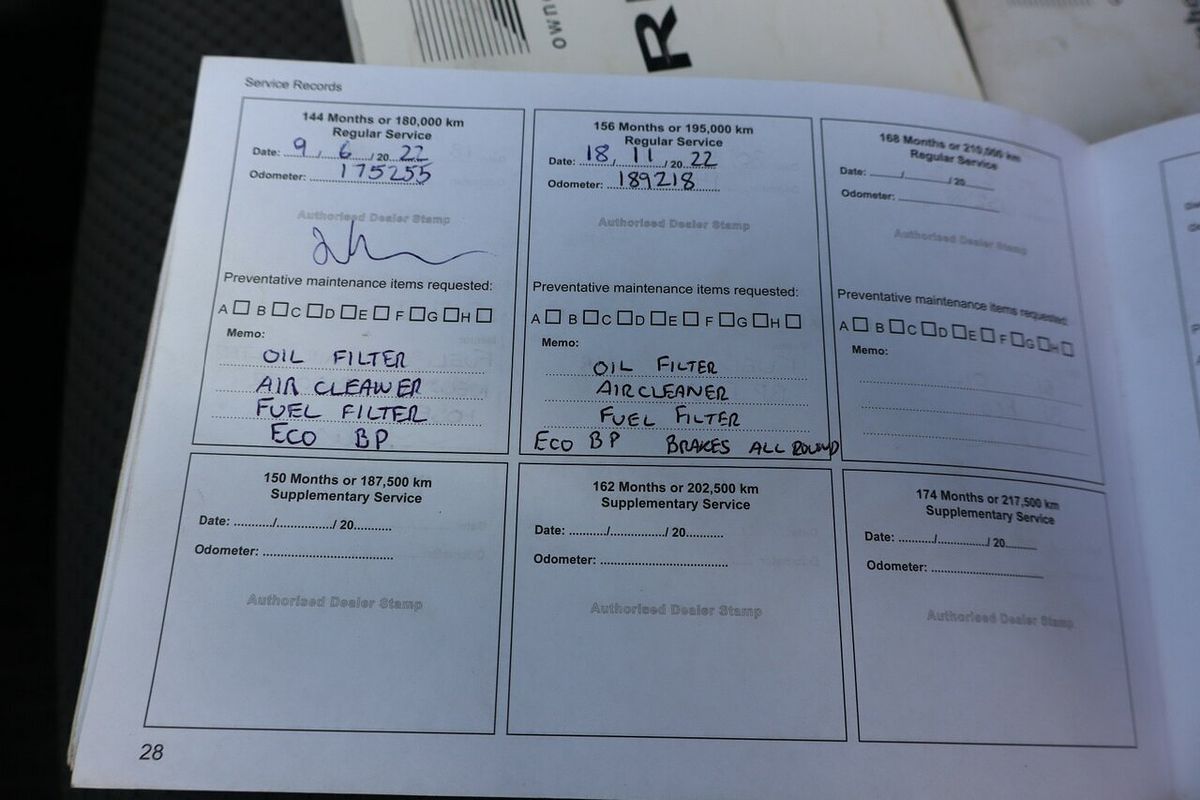 OWN
R
Service Records
144 Months or 180,000 km
Regular Service
Date: 9 / 6 / 20 22
Odometer: 175255
Authorised Dealer Stamp
Preventative maintenance items requested:
A B C D E F G H
Memo:
OIL FILTER
AIR CLEANER
FUEL FILTER
ECO BP
156 Months or 195,000 km
Regular Service
Date: 18 / 11 / 20 22
Odometer: 189218
Authorised Dealer Stamp
Preventative maintenance items requested:
A B C D E F G H
Memo:
OIL FILTER
AIR CLEANER
FUEL FILTER
ECO BP BRAKES ALL ROUND
168 Months or 210,000 km
Regular Service
Date: ......../............/20........
Odometer: ........................
Authorised Dealer Stamp
Preventative maintenance items requested:
A B C D E F G H
Memo:
150 Months or 187,500 km
Supplementary Service
Date: .........../................/ 20..........
Odometer: ....................................
Authorised Dealer Stamp
162 Months or 202,500 km
Supplementary Service
Date: .........../................/ 20..........
Odometer: ....................................
Authorised Dealer Stamp
174 Months or 217,500 km
Supplementary Service
Date: ........./............../ 20.........
Odometer: ................................
Authorised Dealer Stamp
28